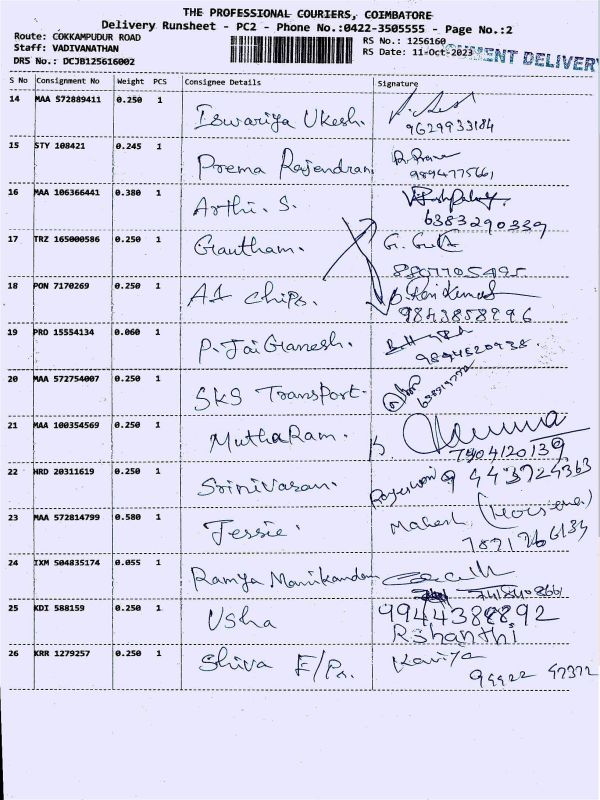 THE PROFESSIONAL COURIERS, COIMBATORE
Delivery Runsheet - PC2 - Phone No.:0422-3505555 - Page No.:2
Route: COKKAMPUDUR ROAD
Staff: VADIVANATHAN
DRS No.: DCJB125616002
RS No.: 1256160
RS Date: 11-Oct-2023
DELIVERY
S No Consignment No Weight PCS Consignee Details Signature
14 MAA 572889411 0.250 1 Iswariya Ukesh.
9629933184
15 STY 108421 0.245 1 Prema Rajendran
9894775661
16 MAA 106366441 0.380 1 Arthi. S.
6383290339
17 TRZ 165000586 0.250 1 Gautham.
18 PON 7170269 0.250 1 A1 chips.
9843858296
19 PRO 15554134 0.060 1 P. Jai Ganesh.
9894520938.
20 MAA 572754007 0.250 1 SKS Transport.
21 MAA 100354569 0.250 1 MuthaRam.
7904120139
22 HRD 20311619 0.250 1 Srinivasan.
9443724363
23 MAA 572814799 0.580 1 Jessie. Mahesh
24 IXM 504835174 0.055 1 Ramya Manikandan
25 KDI 588159 0.250 1 Usha 9944388892
R Shanthi
26 KRR 1279257 0.250 1 Shiva E/Ps. Kaviya
94422 47372